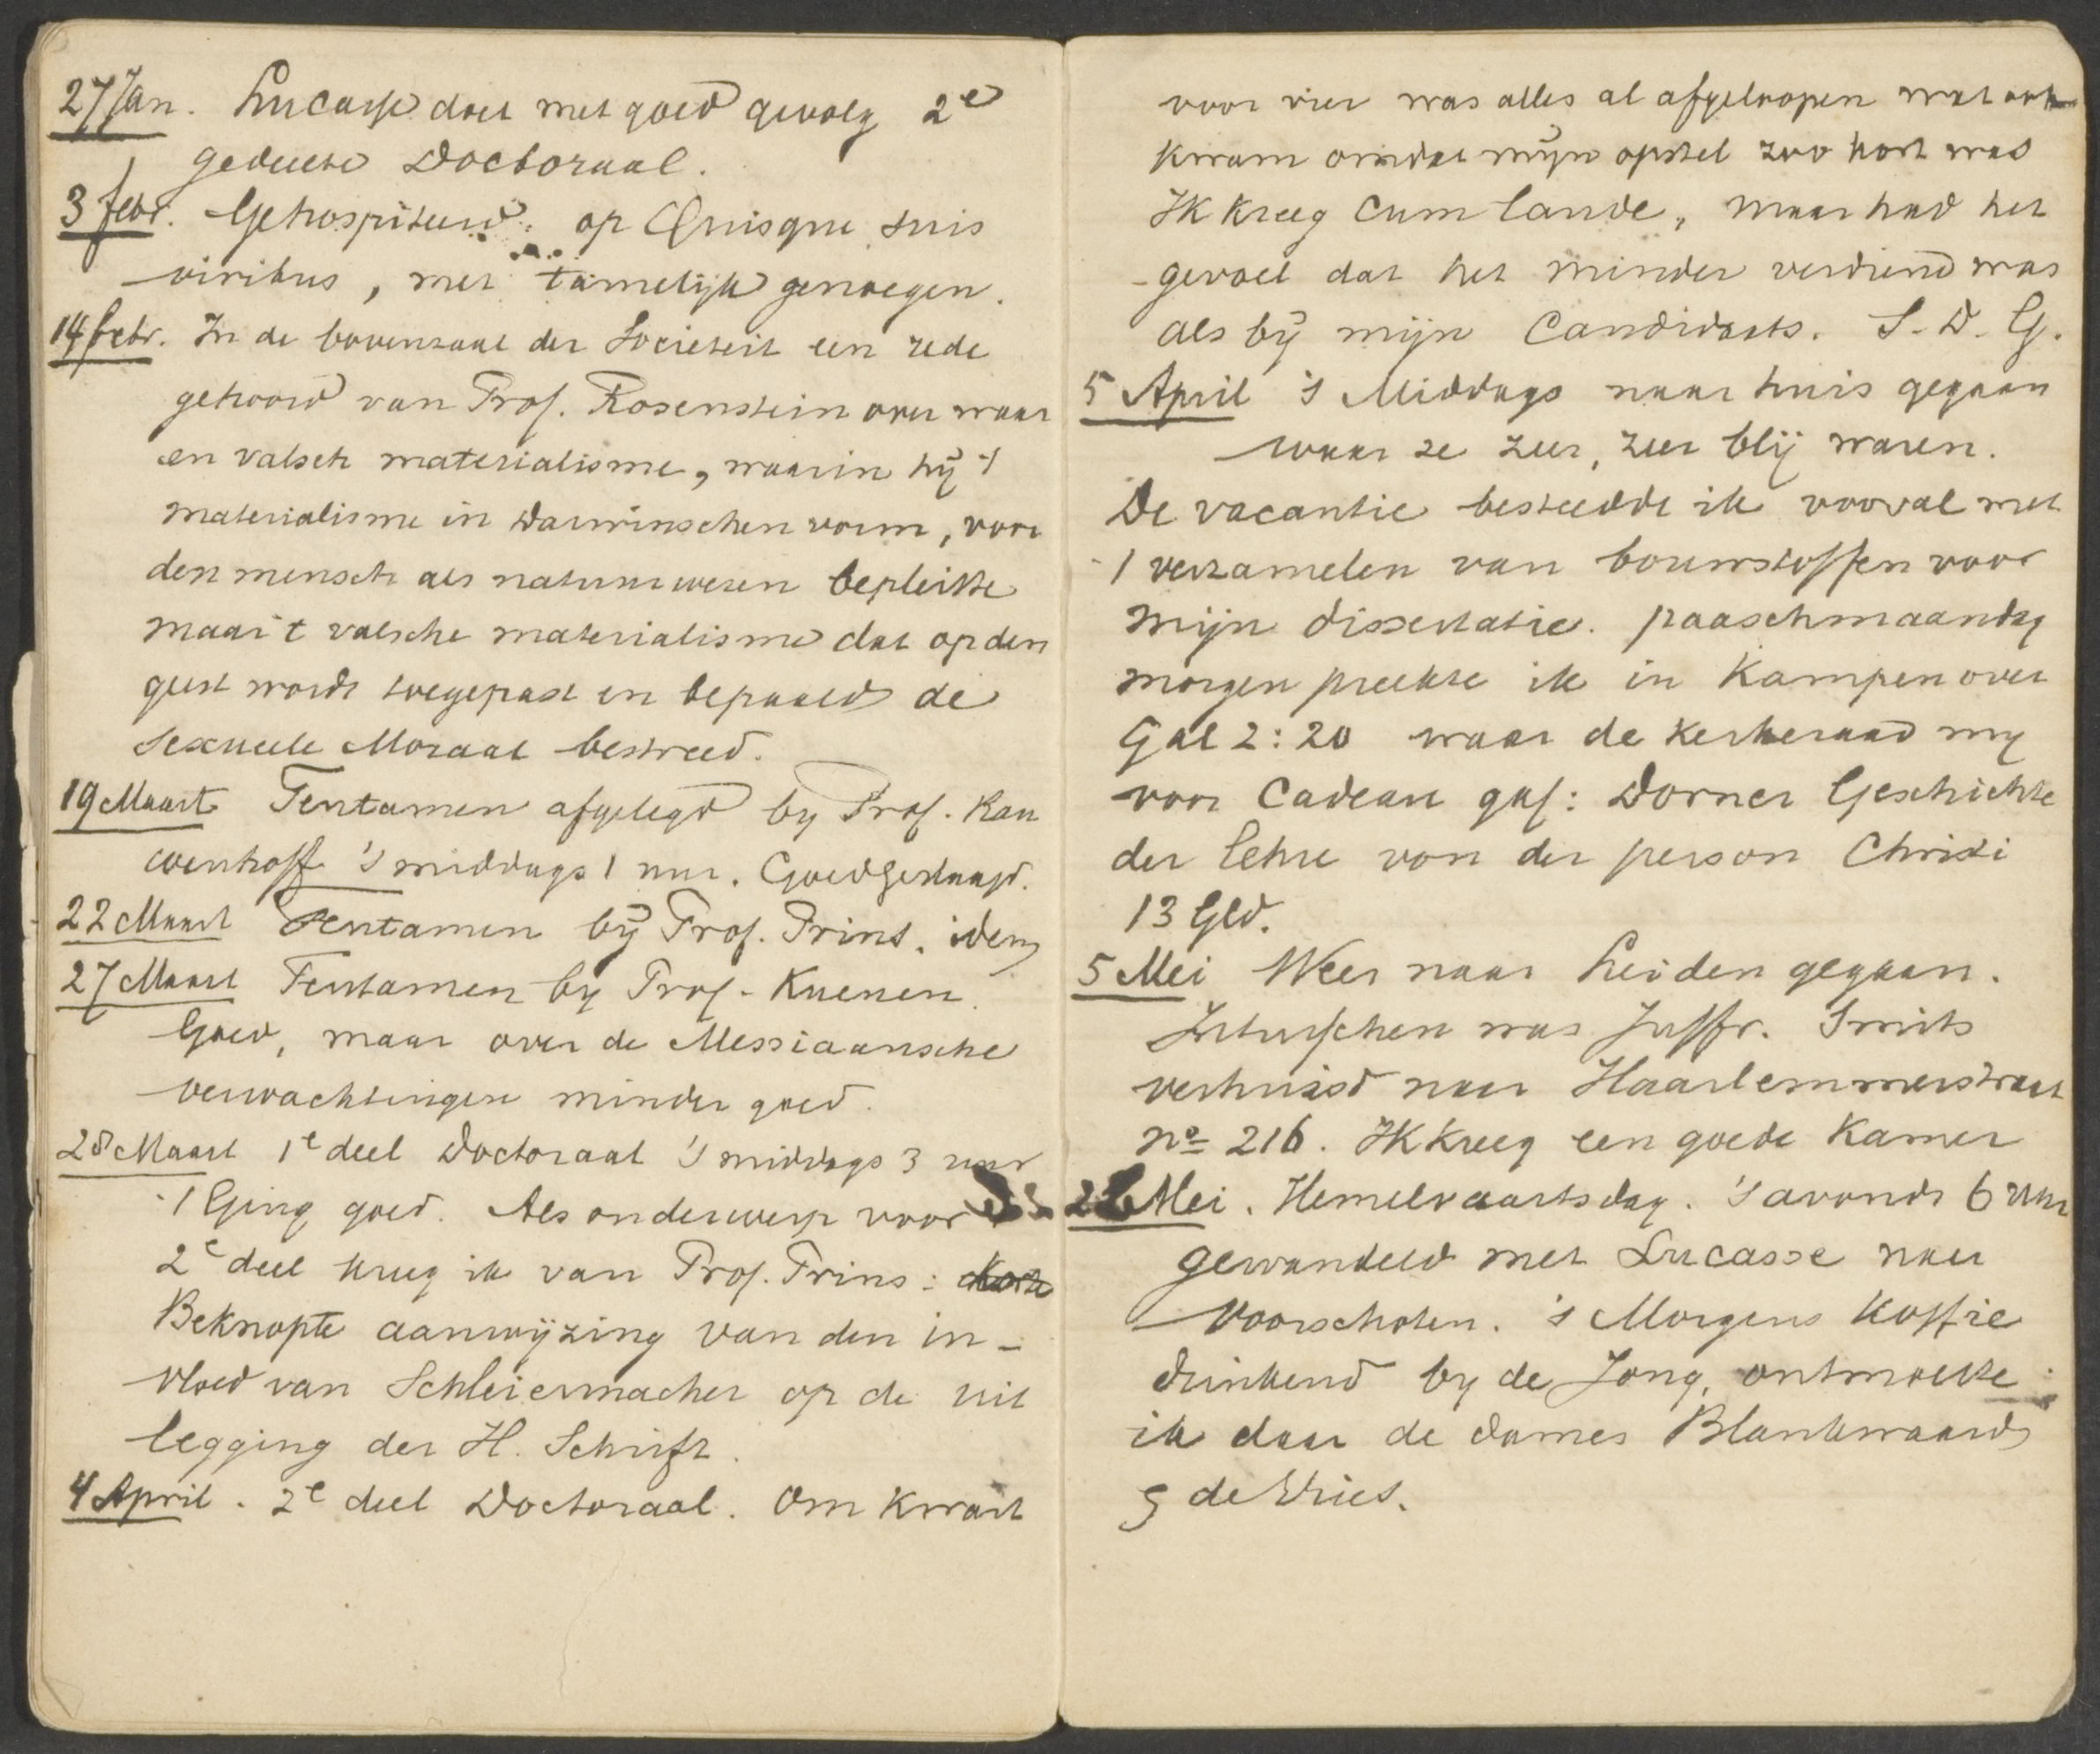 27 Jan. Lucasse doet met goed gevolg 2e
gedeelte Doctoraal.
3 febr. Gehospiteerd op Quisque suis
viribus, met tamelijk genoegen.
14 febr. In de bovenzaal der Societeit een rede
gehoord van Prof. Rosenstein over waar
en valsch materialisme, waarin hij 't
materialisme in Darwinschen vorm, voor
den mensch als natuurwezen bepleitte
maar 't valsche materialisme dat op den
geest wordt toegepast en bepaald de
Sexueele Moraal bestreed.
19 Maart Tentamen afgelegd by Prof. Rau
wenhoff 's middags 1 uur. Goed geslaagd.
22 Maart Tentamen bij Prof. Prins. idem
27 Maart Tentamen by Prof. Kuenen.
Goed, maar over de Messiaansche
verwachtingen minder goed.
28 Maart 1e deel Doctoraal 's middags 3 uur
't Ging goed. Als onderwerp voor
2e deel kreeg ik van Prof. Prins: Korte
Beknopte aanwijzing van den in-
vloed van Schleiermacher op de uit
legging der H. Schrift.
4 April. 2e deel Doctoraal. Om kwart
voor vier was alles al afgeloopen wat ook
kwam omdat mijn opstel zoo kort was
Ik kreeg Cum laude, maar had het
gevoel dat het minder verdiend was
als bij mijn Candidaats. S. D. G.
5 April 's Middags naar huis gegaan
waar ze zeer, zeer blij waren.
De vacantie besteedde ik vooral met
't verzamelen van bouwstoffen voor
mijn dissertatie. paaschmaandag
morgen preekte ik in Kampen over
Gal 2:20 waar de kerkeraad my
voor Cadeau gaf: Dorner Geschichte
der Lehre von der person Christi
13 Gld.
5 Mei Weer naar Leiden gegaan.
Intusschen was Juffr. Smits
verhuisd naar Haarlemmerstraat
no 216. Ik kreeg een goede Kamer
Mei. Hemelvaartsdag. 's avonds 6 uur
gewandeld met Lucasse naar
Voorschoten. 's Morgens koffie
drinkend by de Jong, ontmoette
ik daar de dames Blankwaard
& de Vries.